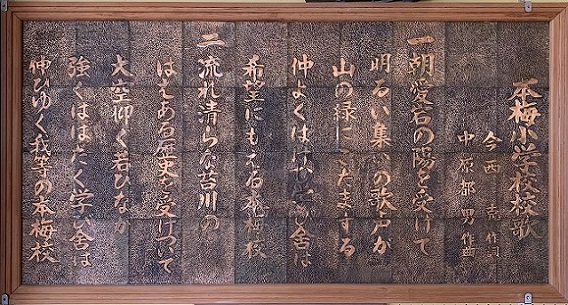 本梅小学校校歌
今西 克 作詞
中原都男 作曲
一 朝愛宕の陽を受けて
明るい集いの歌声が
山の緑にこだまする
仲よくはげむ学び舎は
希望にもえる本梅校
二 流れ清らな苔川の
はえある歴史を受けついで
大空仰ぐ若ひなが
強くはばたく学び舎は
伸びゆく我等の本梅校